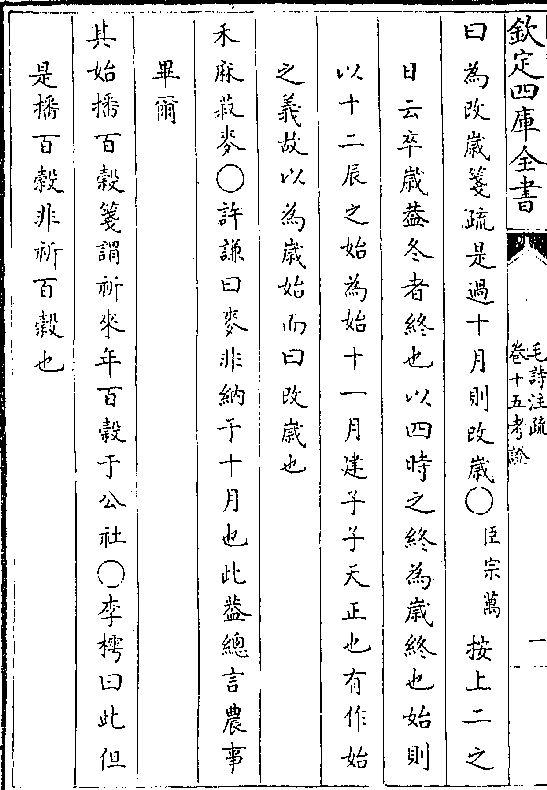 欽定四庫全書
毛詩注疏
卷十五考證
一
曰為改歲箋疏是過十月則改歲〇臣宗萬按上二之
日云卒歲葢冬者終也以四時之終為歲終也始則
以十二辰之始為始十一月建子子天正也有作始
之義故以為歲始而曰改歲也
禾麻菽麥〇許謙曰麥非納于十月也此葢總言農事
畢爾
其始播百穀箋謂祈來年百穀于公社〇李樗曰此但
是播百穀非祈百穀也